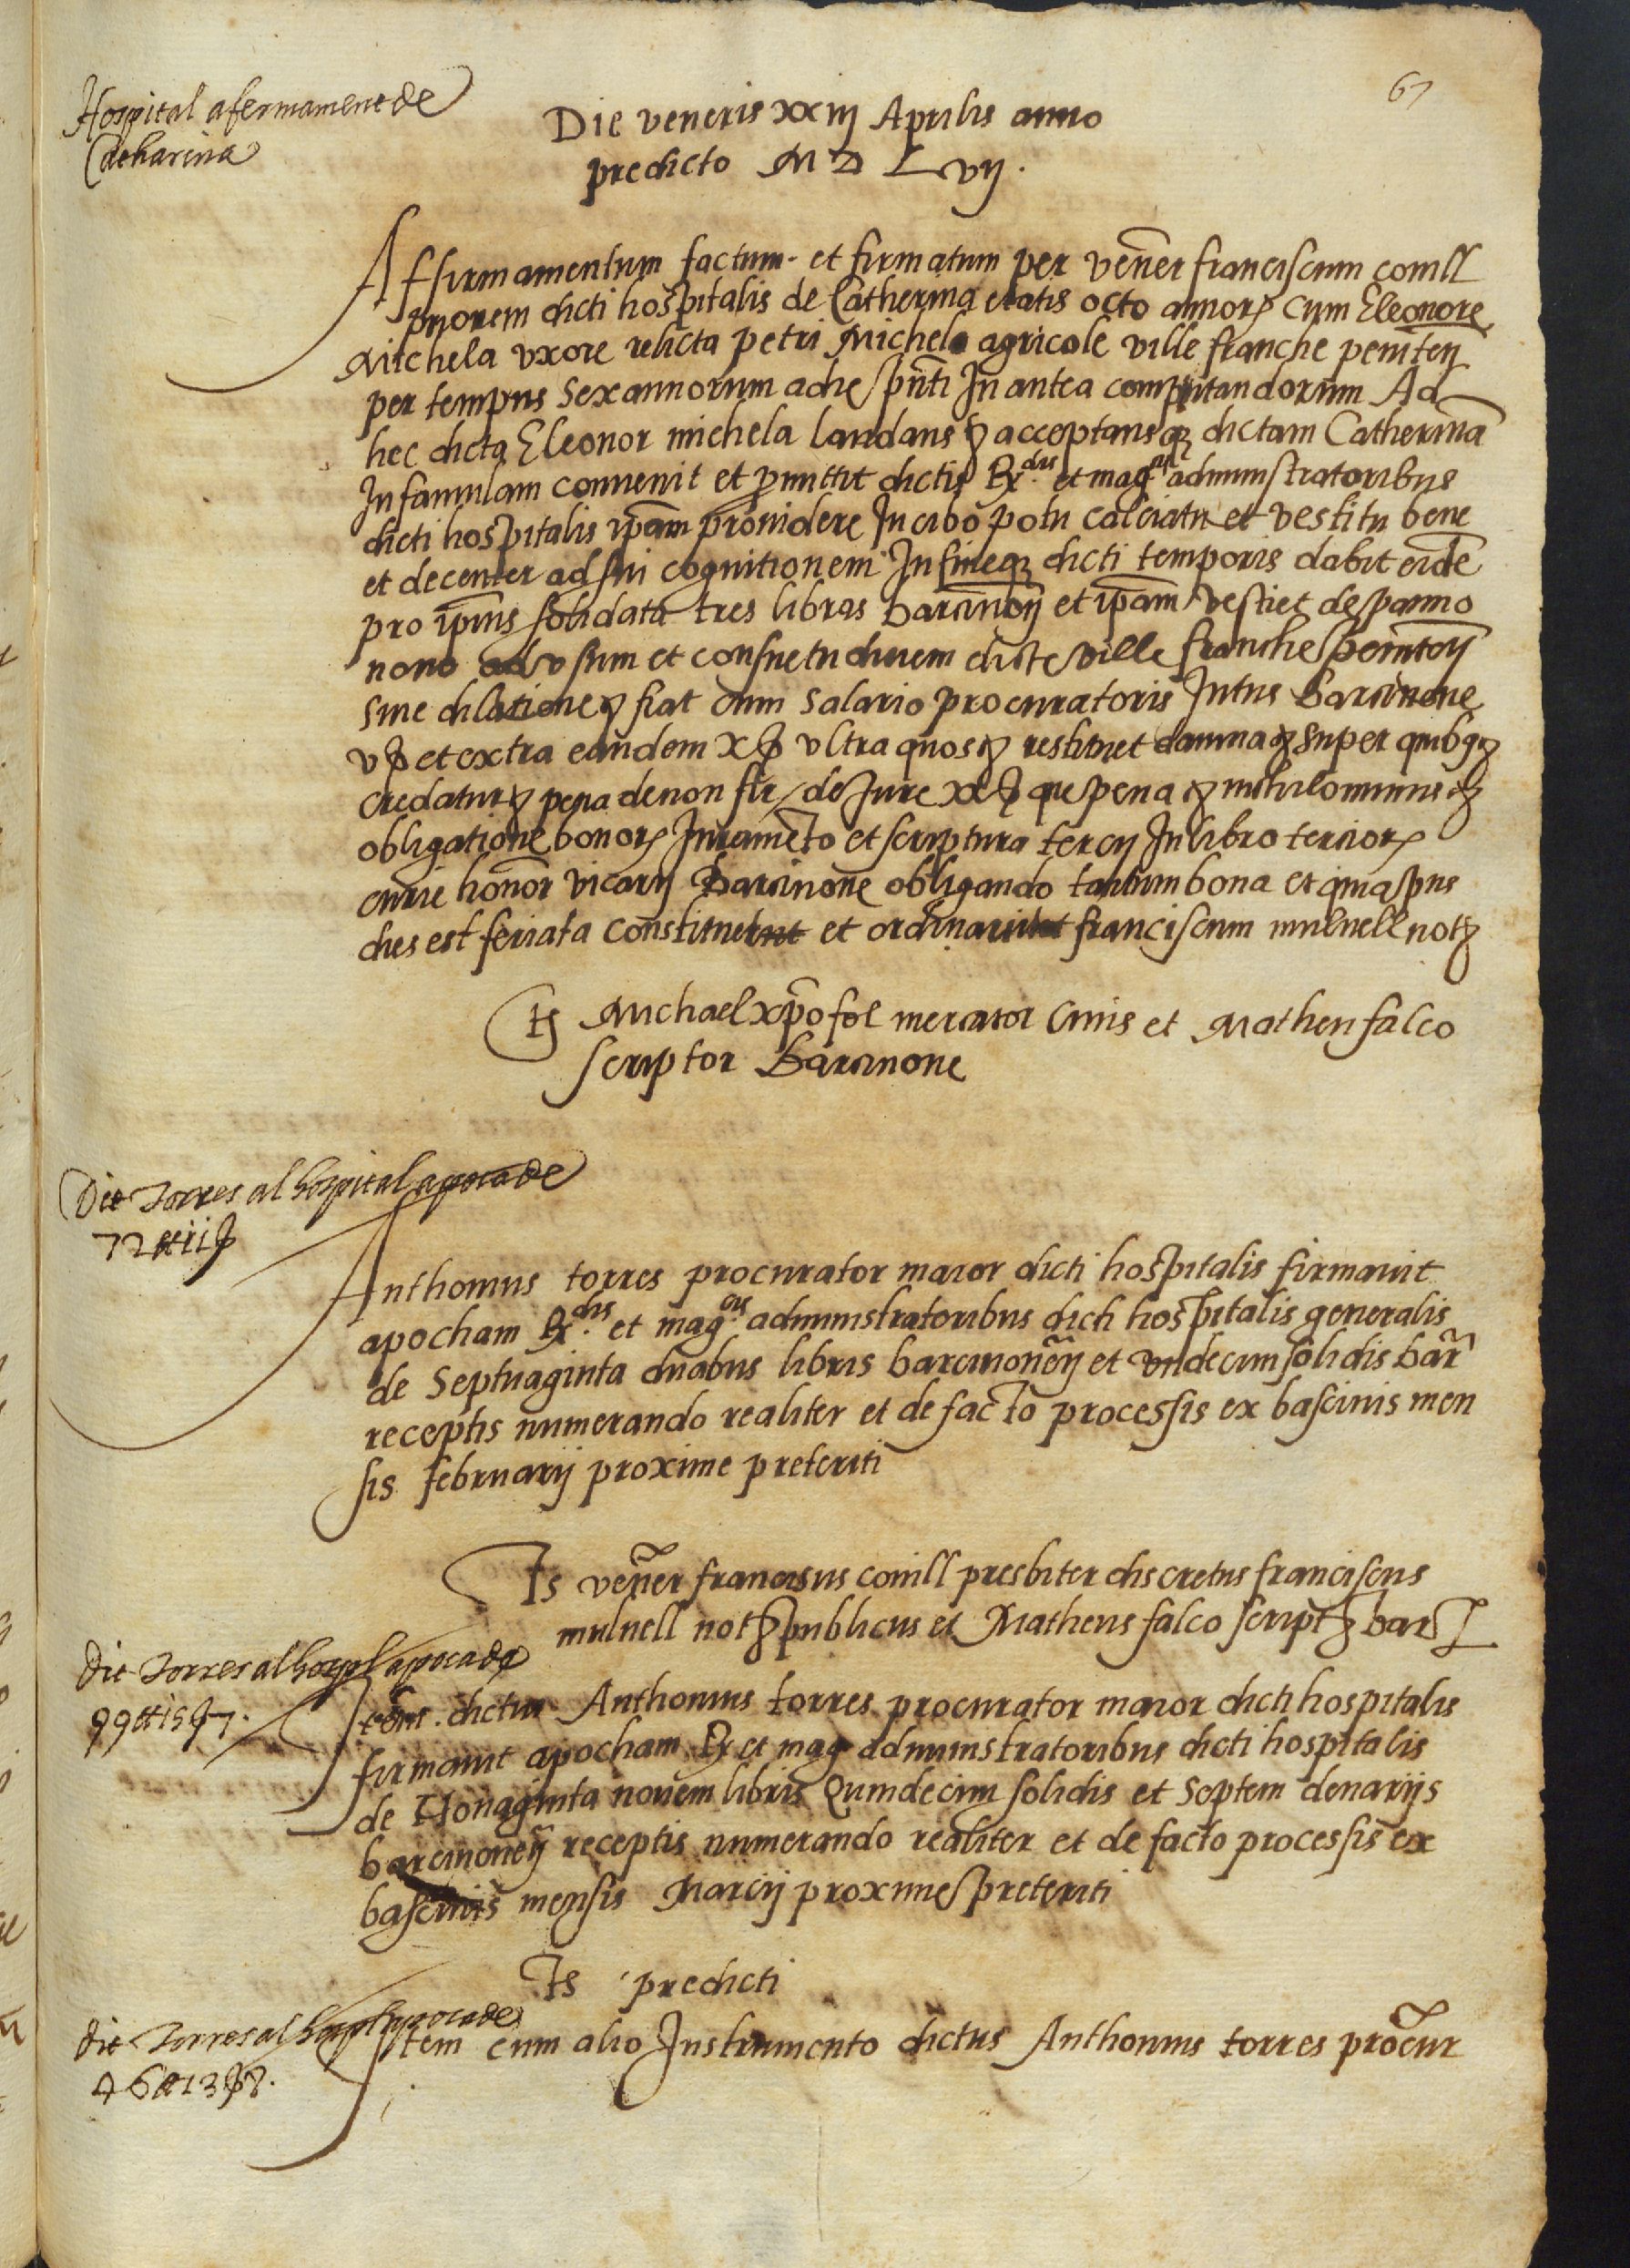 67
Hospital afermament de
Catharina
Die veneris xxiij Aprilis anno
predicto M D L vij.
Affirmamentum factum et firmatum per vener franciscum conill
priorem dicti hospitalis de Catherina etatis octo annorȝ cum Eleonore
Michela vxore relicta petri Michela agricole ville franche peniteñ
per tempus sex annorum ad hec pñti In antea computandorum Ad
hec dicta Eleonor michela laudans ȝ acceptansqȝ dictam Catherinā
In famulam convenit et promittit dictis Rdis et magcis administratoribus
dicti hospitalis ip̄am providere In cibo potu calciatu et vestitu bene
et decenter ad sui cognitionem In fineqȝ dicti temporis dabit eidē
pro ip̄ius solidata tres libras barcinoñ et ip̄am vestiet de panno
novo ad vsum et consuetudinem dicte ville franche penitoñ
sine dilatione ȝ fiat cum salario procuratoris Intus Barcinone
v ß et extra eandem x ß vltra quos ȝ restituet damna ȝ super quibȝ ȝ
credatur ȝ pena de non fir de Jure xx ß que pena ȝ nihilominus ȝ
obligatione bonorȝ Juramēto et scriptura tercij In libro terciorȝ
curie honor vicarij Barcinone obligando tantum bona et quia pñs
dies est feriata constituerunt et ordinarunt franciscum mulnell notȝ
Ts Michael xp̄ofol mercator Civis et Matheu falco
scriptor Barcinone
Dit Torres al hospital apoca de
72 ₶ ii ß
Anthonius torres procurator maior dicti hospitalis firmavit
apocham Rdis et magcis administratoribus dicti hospitalis generalis
de Septuaginta duabus libris barcinoneñ et vndecim solidis bar
receptis numerando realiter et de facto processis ex bascinis men
sis februarij proxime preteriti
Ts vener franciscus conill presbiter discretus franciscus
mulnell notȝ publicus et Matheus falco scriptȝ bar
Dit Torres al hospl apoca de
99 ₶ 15 ß 7.
Item dictus Anthonius torres procurator maior dicti hospitalis
firmavit apocham R et mag administratoribus dicti hospitalis
de Nonaginta novem libris Quindecim solidis et Septem denarijs
barcinoneñ receptis numerando realiter et de facto processis ex
bascinis mensis Marcij proxime preteriti
Ts predicti
Dit Torres al hospl apoca de
46 ₶ 13 ß 8.
Item cum alio Instrumento dictus Anthonius torres procur